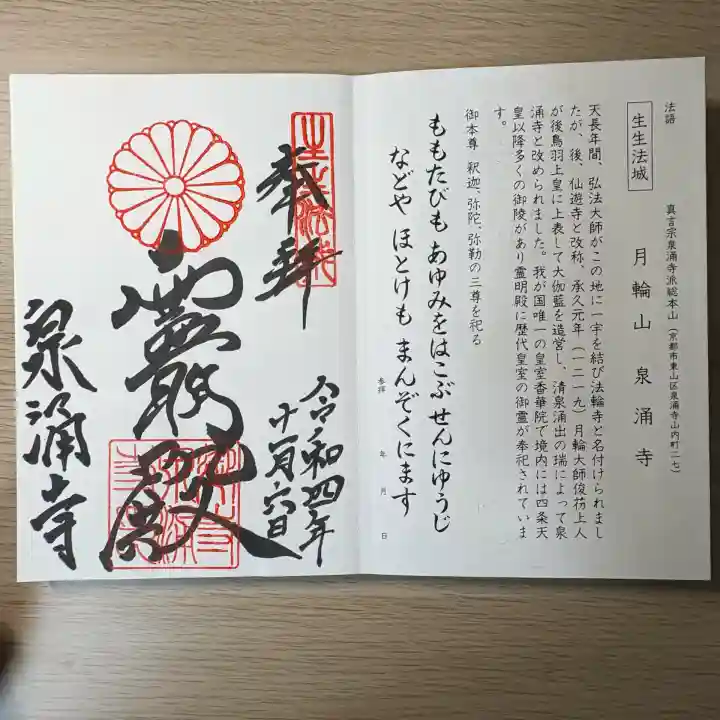 法語
生生法城
真言宗泉涌寺派総本山(京都市東山区泉涌寺山内町二七)
月輪山 泉涌寺
天長年間、弘法大師がこの地に一宇を結び法輪寺と名付けられまし
たが、後、仙遊寺と改称、承久元年(一二一九)月輪大師俊芿上人
が後鳥羽上皇に上表して大伽藍を造営し、清泉涌出の瑞によって泉
涌寺と改められました。我が国唯一の皇室香華院で境内には四条天
皇以降多くの御陵があり霊明殿に歴代皇室の御霊が奉祀されていま
す。
御本尊 釈迦、弥陀、弥勒の三尊を祀る
ももたびも あゆみをはこぶ せんにゆうじ
などや ほとけも まんぞくにます
参拝 年 月 日
生生法城
奉拝
令和四年
十一月六日
霊明殿
泉涌寺